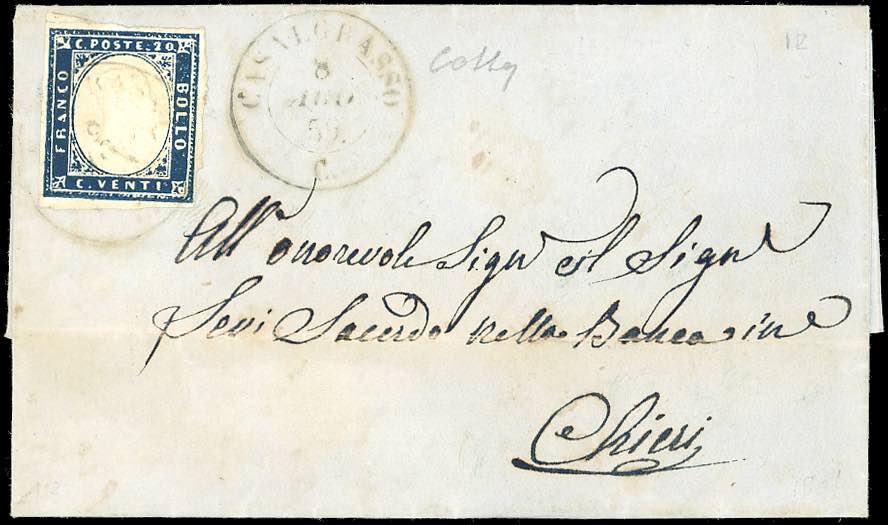 C. POSTE. 20
FRANCO
BOLLO
C. VENTI
CASALGRASSO
8
59
C.
Colla
12
All' onorevole Sign il Sign
Levi Sacerdo nella Banca in
Chieri